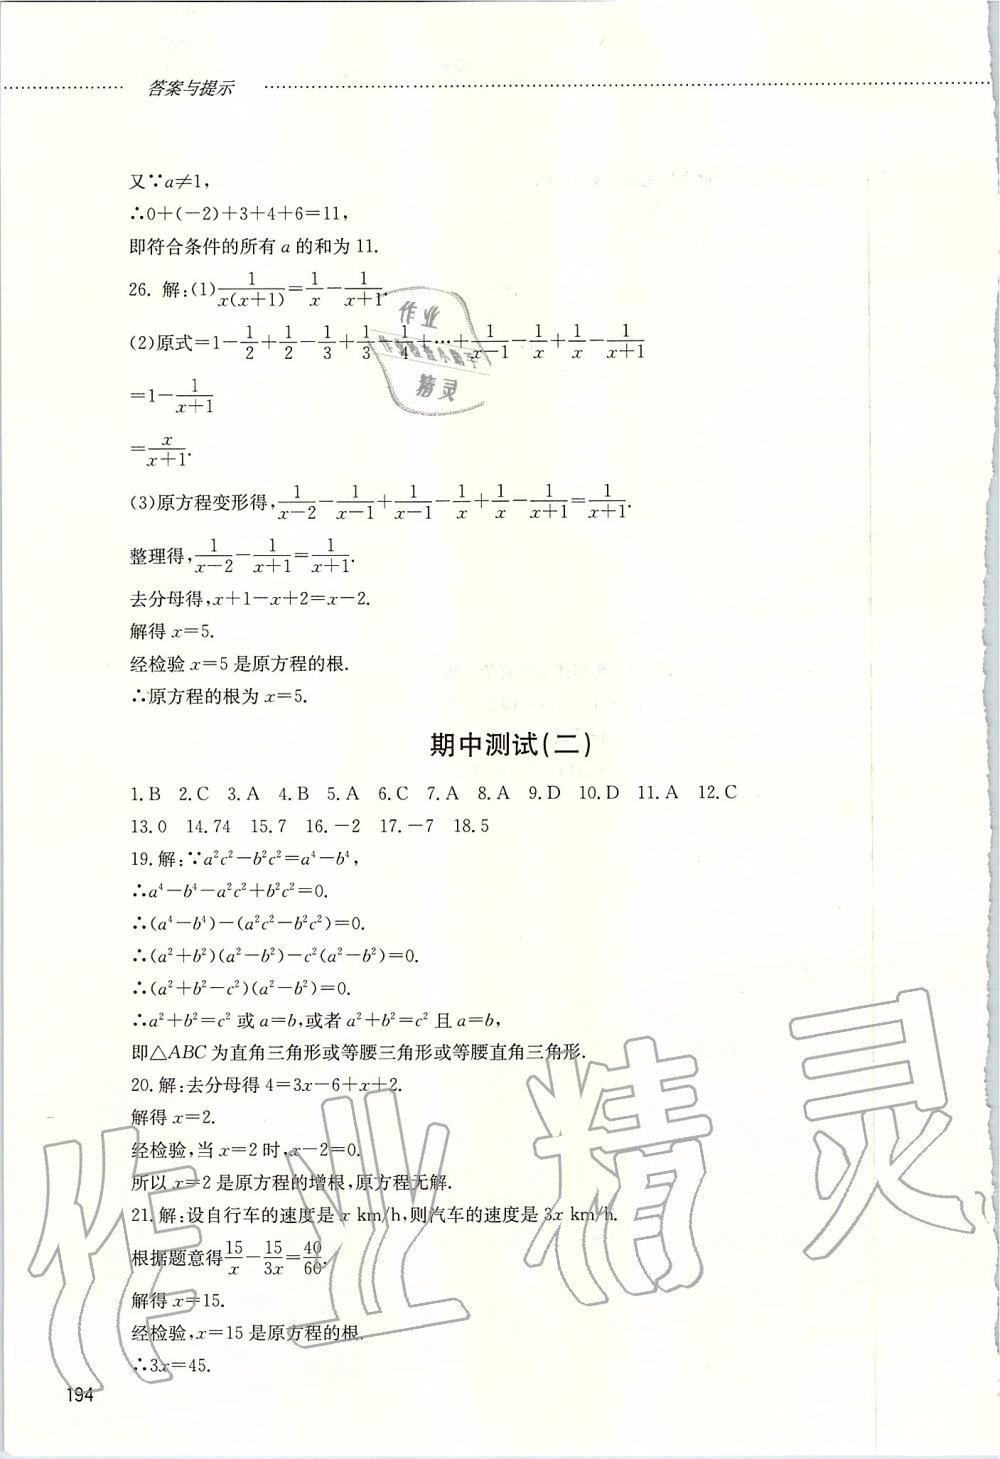 答案与提示
又∵a≠1,
∴0+(-2)+3+4+6=11,
即符合条件的所有 a 的和为 11.
26. 解:(1)1/(x(x+1))=1/x-1/(x+1).
(2)原式=1-1/2+1/2-1/3+1/3-1/4+…+1/(x-1)-1/x+1/x-1/(x+1)
=1-1/(x+1)
=x/(x+1).
(3)原方程变形得,1/(x-2)-1/(x-1)+1/(x-1)-1/x+1/x-1/(x+1)=1/(x+1).
整理得,1/(x-2)-1/(x+1)=1/(x+1).
去分母得,x+1-x+2=x-2.
解得 x=5.
经检验 x=5 是原方程的根.
∴原方程的根为 x=5.
期中测试(二)
1.B 2.C 3.A 4.B 5.A 6.C 7.A 8.A 9.D 10.D 11.A 12.C
13.0 14.74 15.7 16.-2 17.-7 18.5
19.解:∵a²c²-b²c²=a⁴-b⁴,
∴a⁴-b⁴-a²c²+b²c²=0.
∴(a⁴-b⁴)-(a²c²-b²c²)=0.
∴(a²+b²)(a²-b²)-c²(a²-b²)=0.
∴(a²+b²-c²)(a²-b²)=0.
∴a²+b²=c² 或 a=b,或者 a²+b²=c² 且 a=b,
即△ABC 为直角三角形或等腰三角形或等腰直角三角形.
20.解:去分母得 4=3x-6+x+2.
解得 x=2.
经检验,当 x=2 时,x-2=0.
所以 x=2 是原方程的增根,原方程无解.
21.解:设自行车的速度是 x km/h,则汽车的速度是 3x km/h.
根据题意得15/x-15/3x=40/60.
解得 x=15.
经检验,x=15 是原方程的根.
∴3x=45.
194
作业
精灵
作业精灵